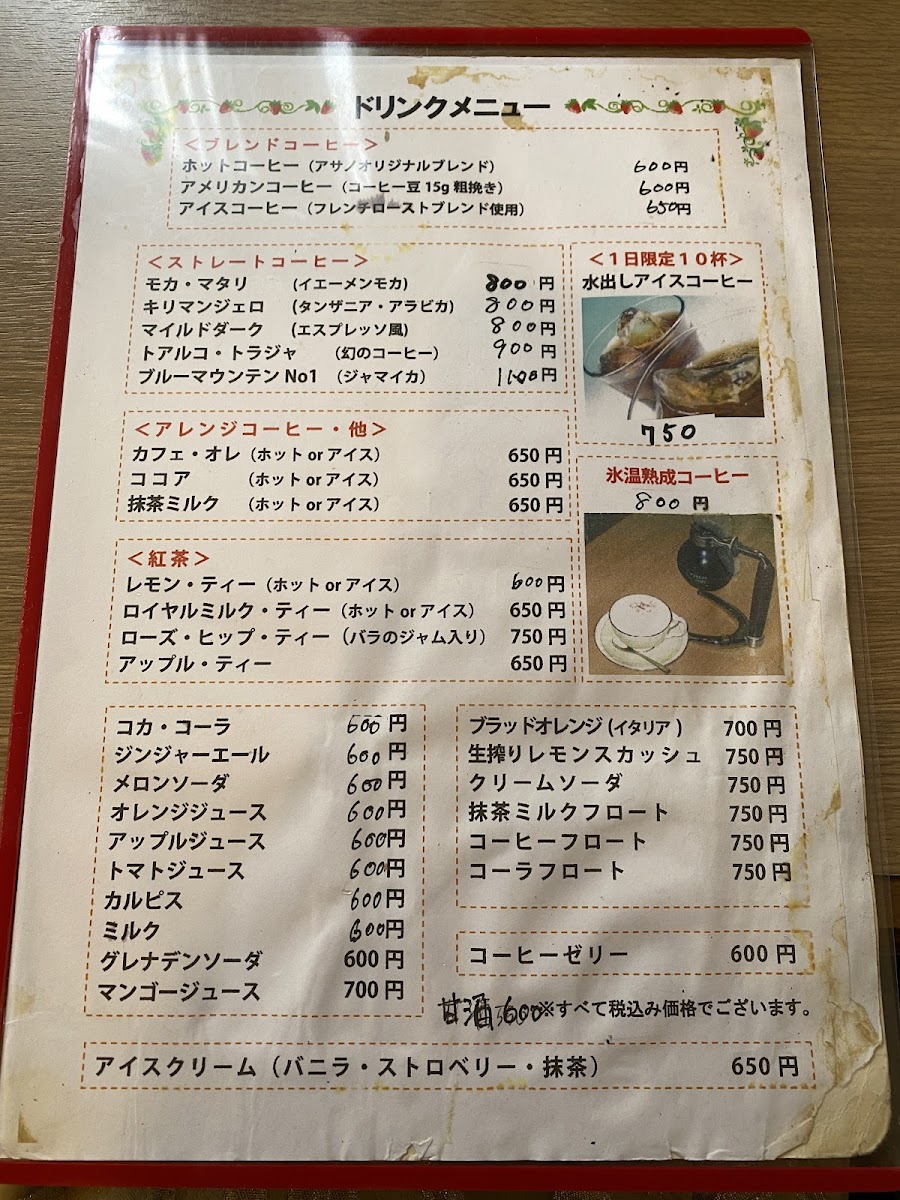 ドリンクメニュー
＜ブレンドコーヒー＞
ホットコーヒー（アサノオリジナルブレンド） 600円
アメリカンコーヒー（コーヒー豆15g粗挽き） 600円
アイスコーヒー（フレンチローストブレンド使用） 650円
＜ストレートコーヒー＞
モカ・マタリ (イエーメンモカ) 800円
キリマンジェロ (タンザニア・アラビカ) 800円
マイルドダーク (エスプレッソ風) 800円
トアルコ・トラジャ （幻のコーヒー） 900円
ブルーマウンテンNo1 （ジャマイカ） 1100円
＜1日限定10杯＞
水出しアイスコーヒー
750
＜アレンジコーヒー・他＞
カフェ・オレ（ホット or アイス） 650円
ココア （ホット or アイス） 650円
抹茶ミルク （ホット or アイス） 650円
氷温熟成コーヒー
800円
＜紅茶＞
レモン・ティー（ホット or アイス） 600円
ロイヤルミルク・ティー（ホット or アイス） 650円
ローズ・ヒップ・ティー（バラのジャム入り） 750円
アップル・ティー 650円
コカ・コーラ 600円
ジンジャーエール 600円
メロンソーダ 600円
オレンジジュース 600円
アップルジュース 600円
トマトジュース 600円
カルピス 600円
ミルク 600円
グレナデンソーダ 600円
マンゴージュース 700円
ブラッドオレンジ(イタリア) 700円
生搾りレモンスカッシュ 750円
クリームソーダ 750円
抹茶ミルクフロート 750円
コーヒーフロート 750円
コーラフロート 750円
コーヒーゼリー 600円
甘酒 600
※すべて税込み価格でございます。
アイスクリーム（バニラ・ストロベリー・抹茶） 650円